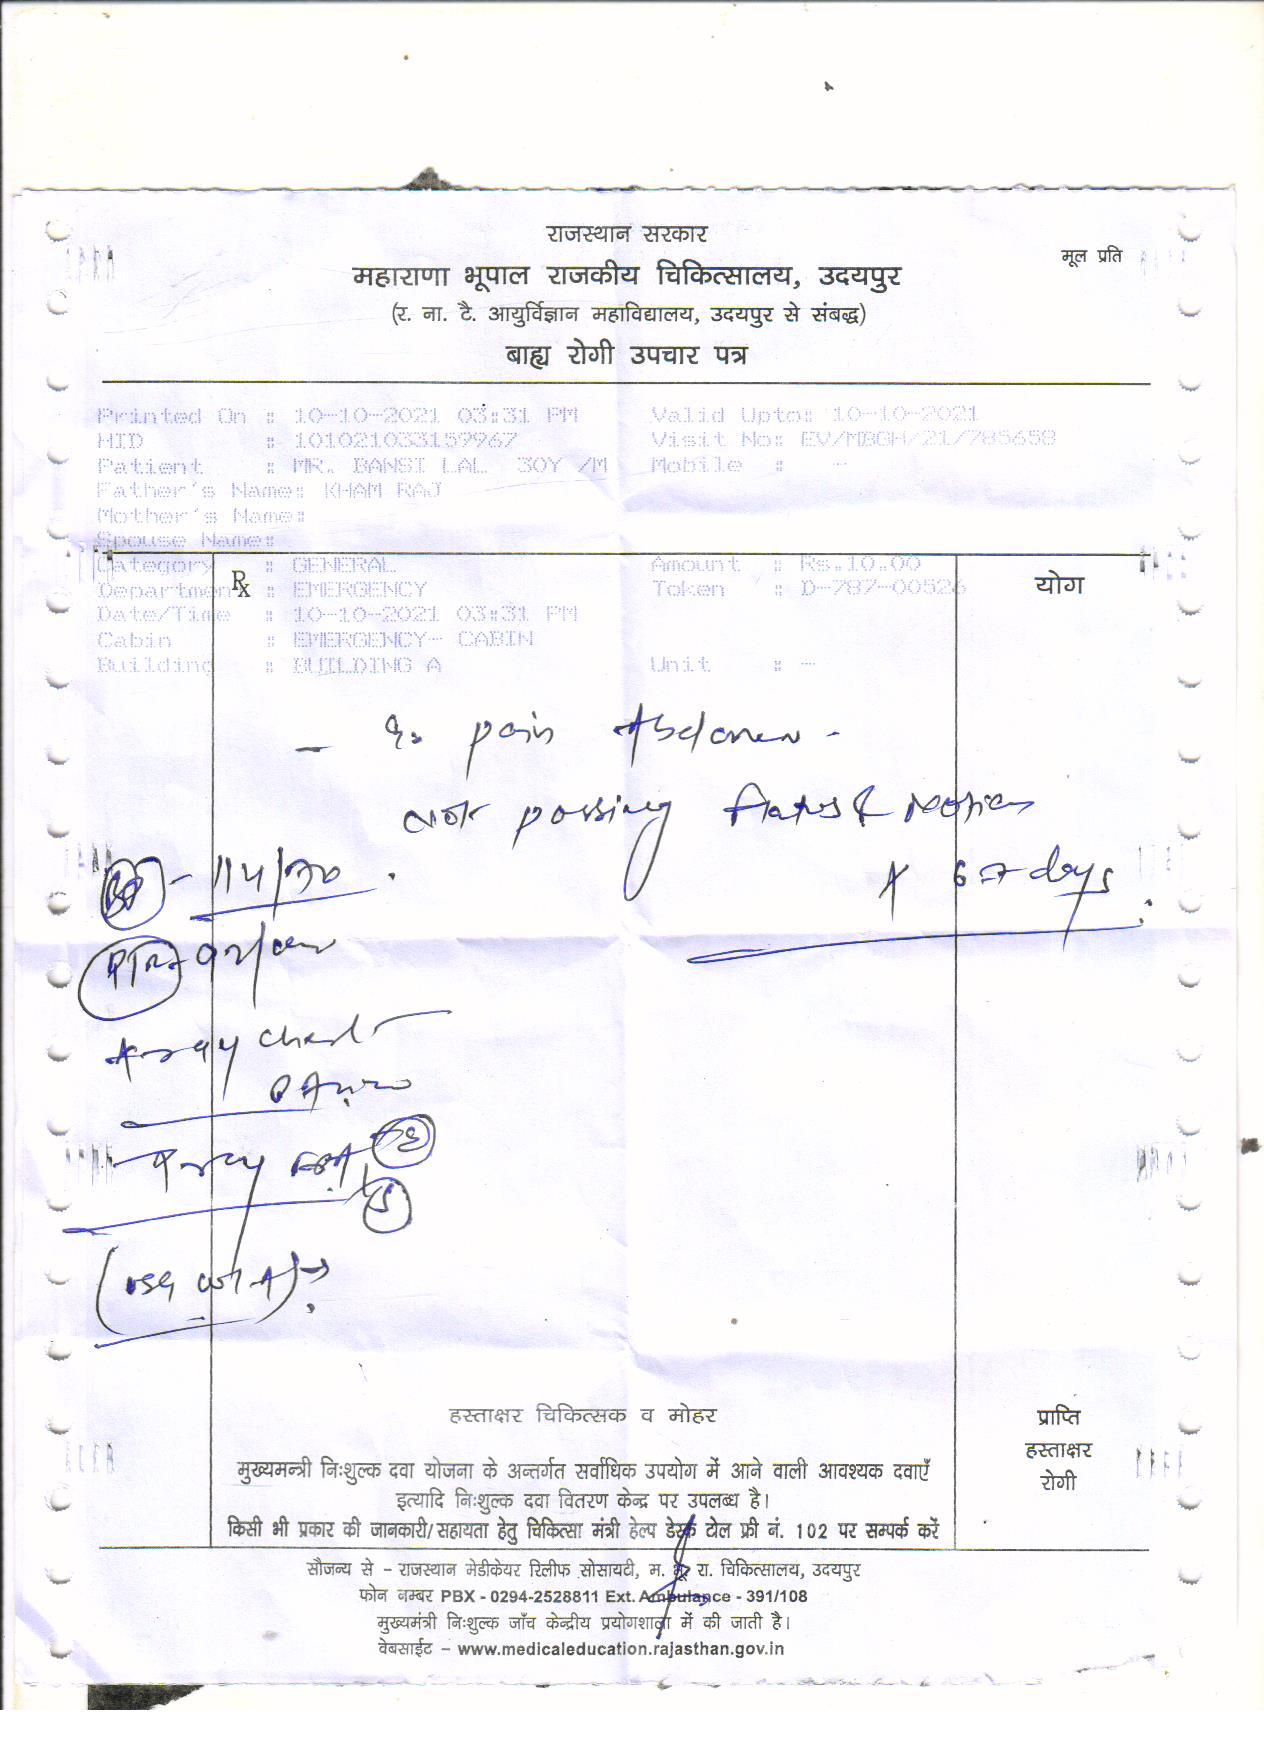 राजस्थान सरकार
मूल प्रति
महाराणा भूपाल राजकीय चिकित्सालय, उदयपुर
(र. ना. टै. आयुर्विज्ञान महाविद्यालय, उदयपुर से संबद्ध)
बाह्य रोगी उपचार पत्र
Printed On : 10-10-2021 03:31 PM Valid Upto: 10-10-2021
HID : 101021033159967 Visit No: EV/MBGH/21/785658
Patient : MR. BANSI LAL 30Y /M Mobile : -
Father's Name: KHAM RAJ
Mother's Name:
Spouse Name:
Category : GENERAL Amount : Rs.10.00
Department : EMERGENCY Token : D-787-00526
Rx योग
Date/Time : 10-10-2021 03:31 PM
Cabin : EMERGENCY- CABIN
Building : BUILDING A Unit : -
pain Abdomen -
not passing flatus & motion
x 6-7 days
BP - 114/70
X-ray chest
PA view
X-ray
(USG W/A)
हस्ताक्षर चिकित्सक व मोहर
प्राप्ति
हस्ताक्षर
रोगी
मुख्यमन्त्री निःशुल्क दवा योजना के अन्तर्गत सर्वाधिक उपयोग में आने वाली आवश्यक दवाएँ
इत्यादि निःशुल्क दवा वितरण केन्द्र पर उपलब्ध है।
किसी भी प्रकार की जानकारी/सहायता हेतु चिकित्सा मंत्री हेल्प डेस्क टोल फ्री नं. 102 पर सम्पर्क करें
सौजन्य से - राजस्थान मेडीकेयर रिलीफ सोसायटी, म. भू. रा. चिकित्सालय, उदयपुर
फोन नम्बर PBX - 0294-2528811 Ext. Ambulance - 391/108
मुख्यमंत्री निःशुल्क जाँच केन्द्रीय प्रयोगशाला में की जाती है।
वेबसाईट - www.medicaleducation.rajasthan.gov.in